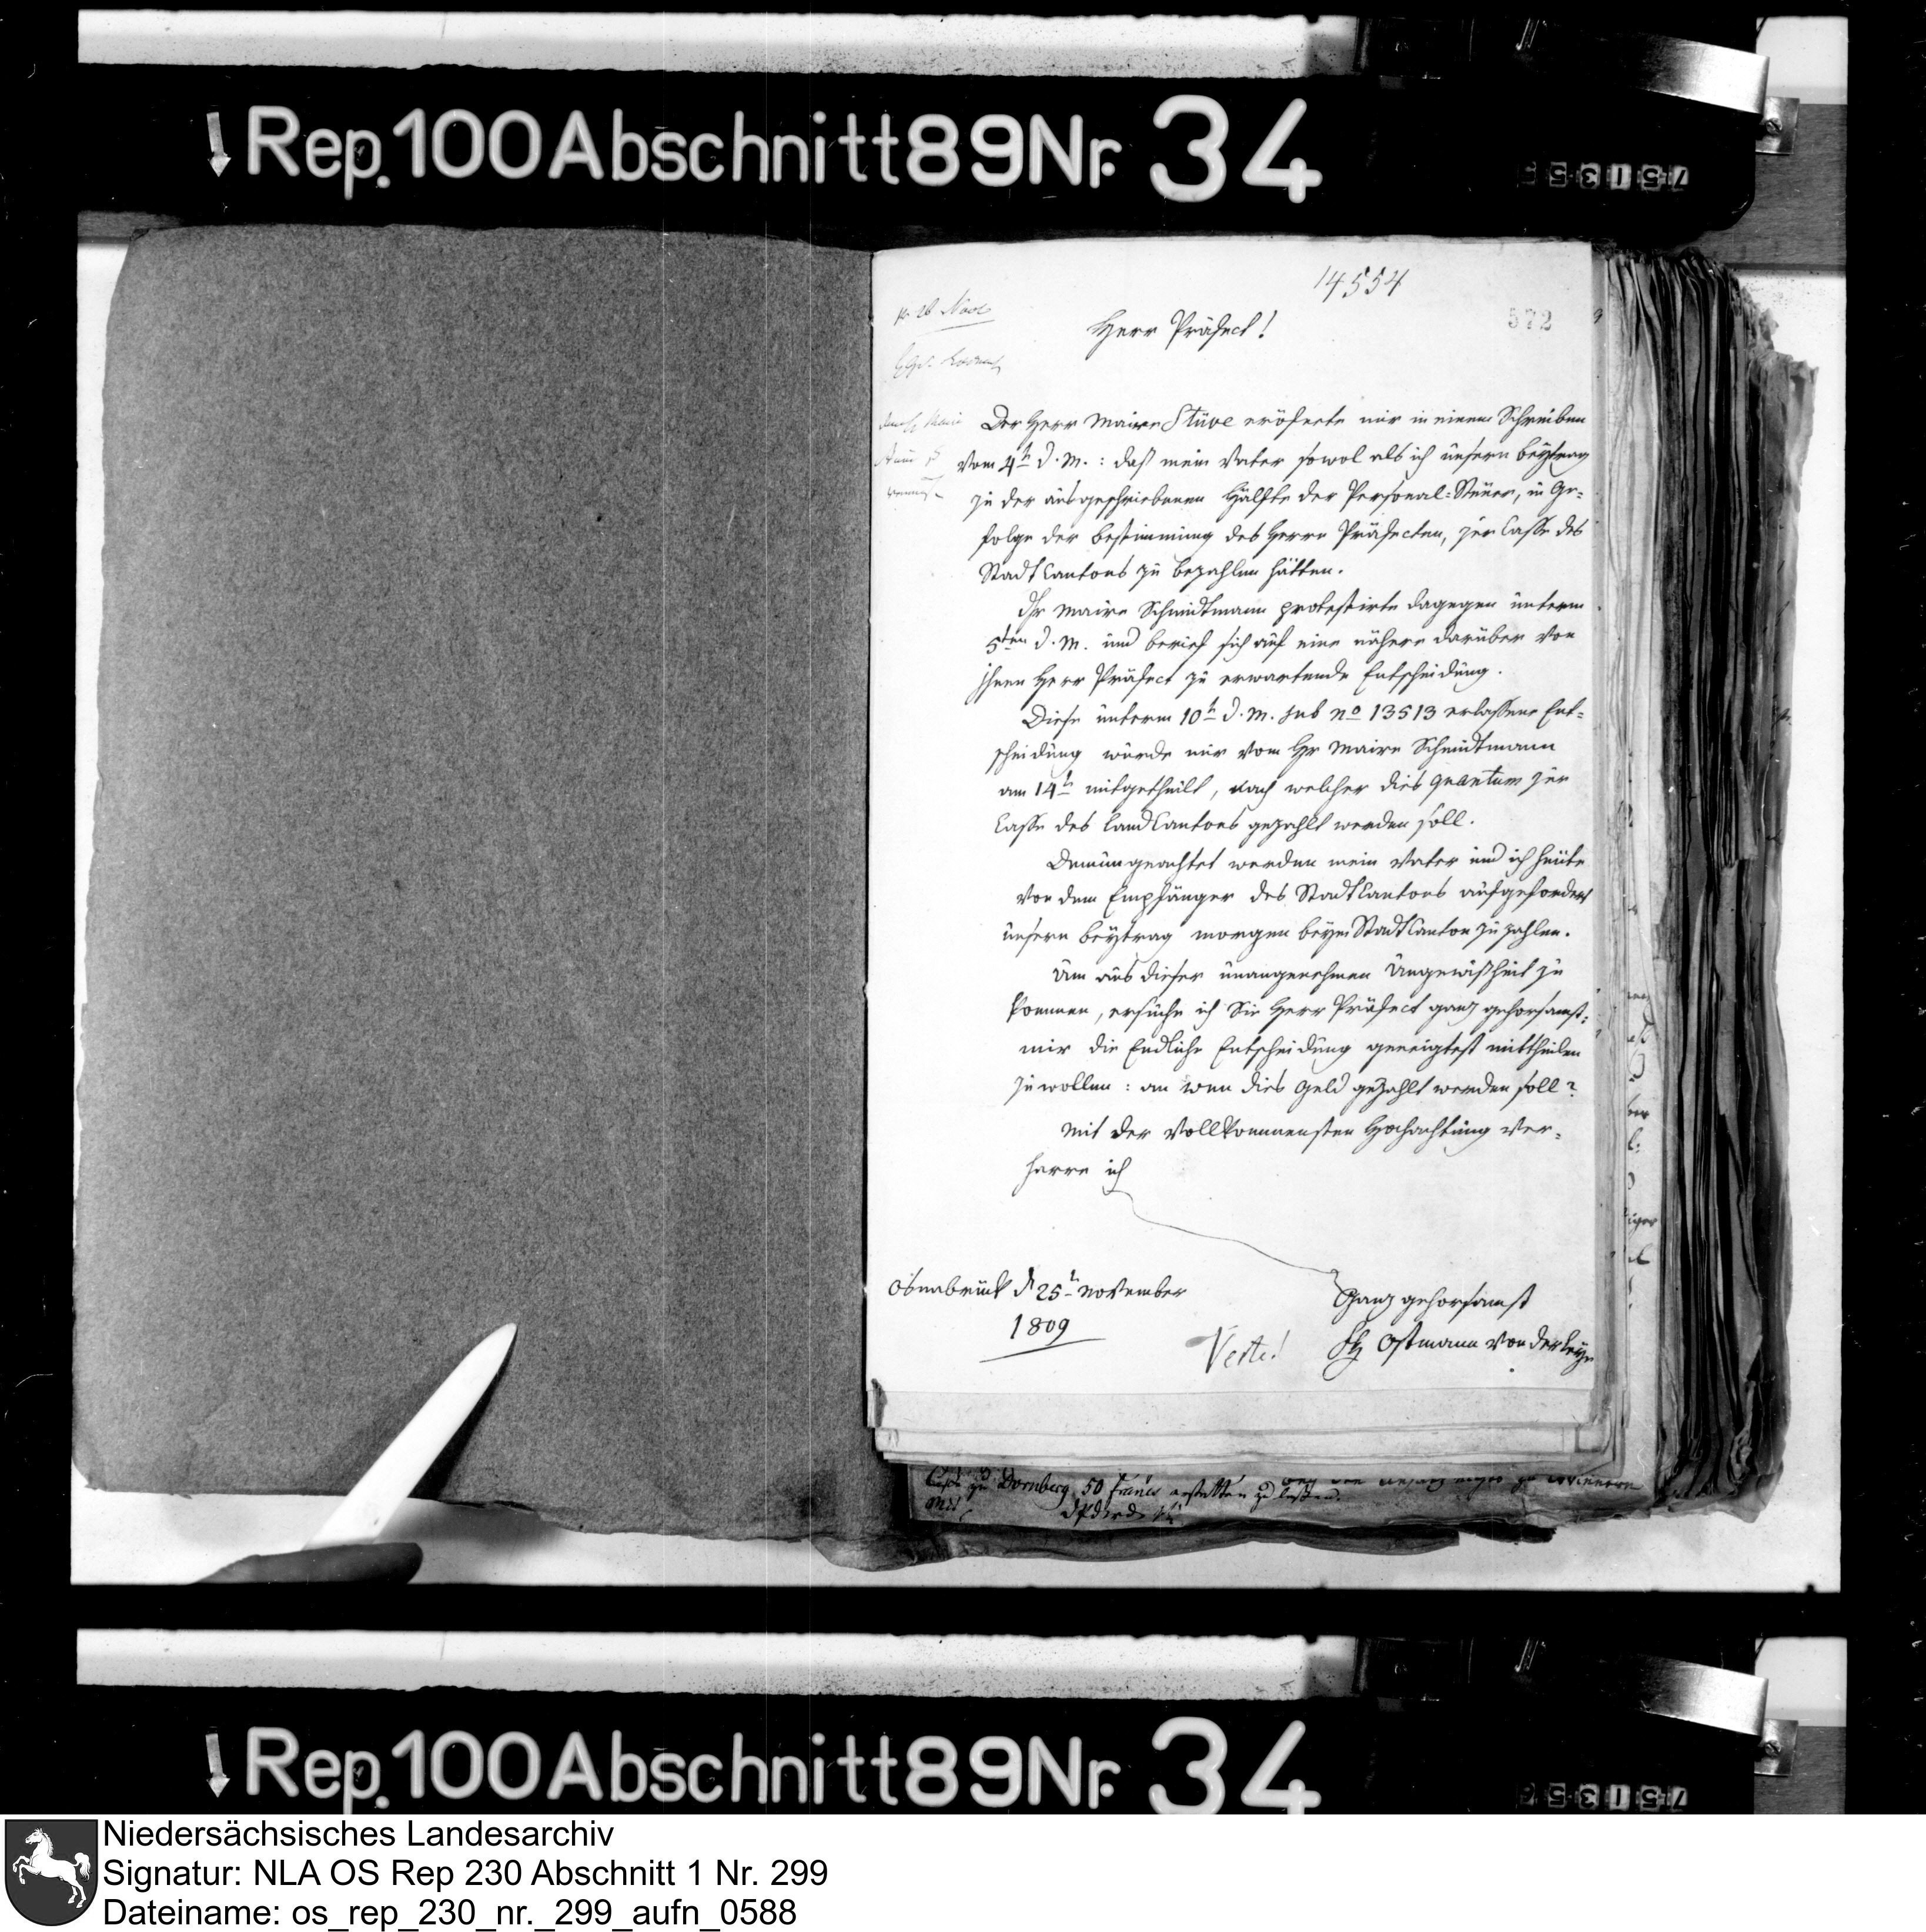 Rep. 100 Abschnitt 89 Nr. 34
14554
572
pr. 26 Nov
Herr Präfect!
Der Herr Maire Stüve eröfnete mir in einem Schreiben
vom 4t. d. M.: daß mein Vater sowol als ich unsern Beytrag
zu der ausgeschriebenen Hälfte der Personal-Steuer, in Ge-
folge der Bestimmung des Herrn Präfecten, zur Casse des
Stadt Cantons zu bezahlen hätten.
Hr Maire Schmidtmann protestirte dagegen unterm
5ten d. M. und berief sich auf eine nähere darüber von
Ihnen Herr Präfect zu erwartende Entscheidung.
Diese unterm 10t. d. M. sub No 13513 erlassene Ent-
scheidung wurde mir vom Hr Maire Schmidtmann
am 14t. mitgetheilt, nach welcher dies Quantum zur
Casse des Land Cantons gezahlt werden soll.
Demungeachtet werden mein Vater und ich heute
von dem Empfänger des Stadt Cantons aufgefordert
unsern Beytrag morgen beym Stadt Canton zu zahlen.
Um aus dieser unangenehmen Ungewißheit zu
kommen, ersuche ich Sie Herr Präfect ganz gehorsamst:
mir die Endliche Entscheidung geneigtest mittheilen
zu wollen: an wen dies Geld gezahlt werden soll?
Mit der Vollkommensten Hochachtung ver-
harre ich
Osnabrück d 25t. November
1809
Ganz gehorsamst
Ostmann von der Leye
Verte!
zu Dornberg 50 Francs zu
Rep. 100 Abschnitt 89 Nr. 34
Niedersächsisches Landesarchiv
Signatur: NLA OS Rep 230 Abschnitt 1 Nr. 299
Dateiname: os_rep_230_nr._299_aufn_0588